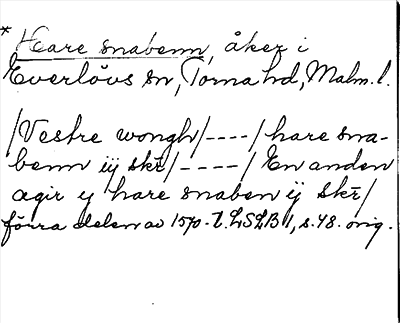 * Hare snabenn, åker i
Everlövs sn, Torna hd, Malm. l.
/Vestre wongh/----/hare sna-
benn iij skr̄/----/En anden
agir ij hare snaben ij skr̄/
förra delen av 1570-t. LSLB 1, s. 48. orig.